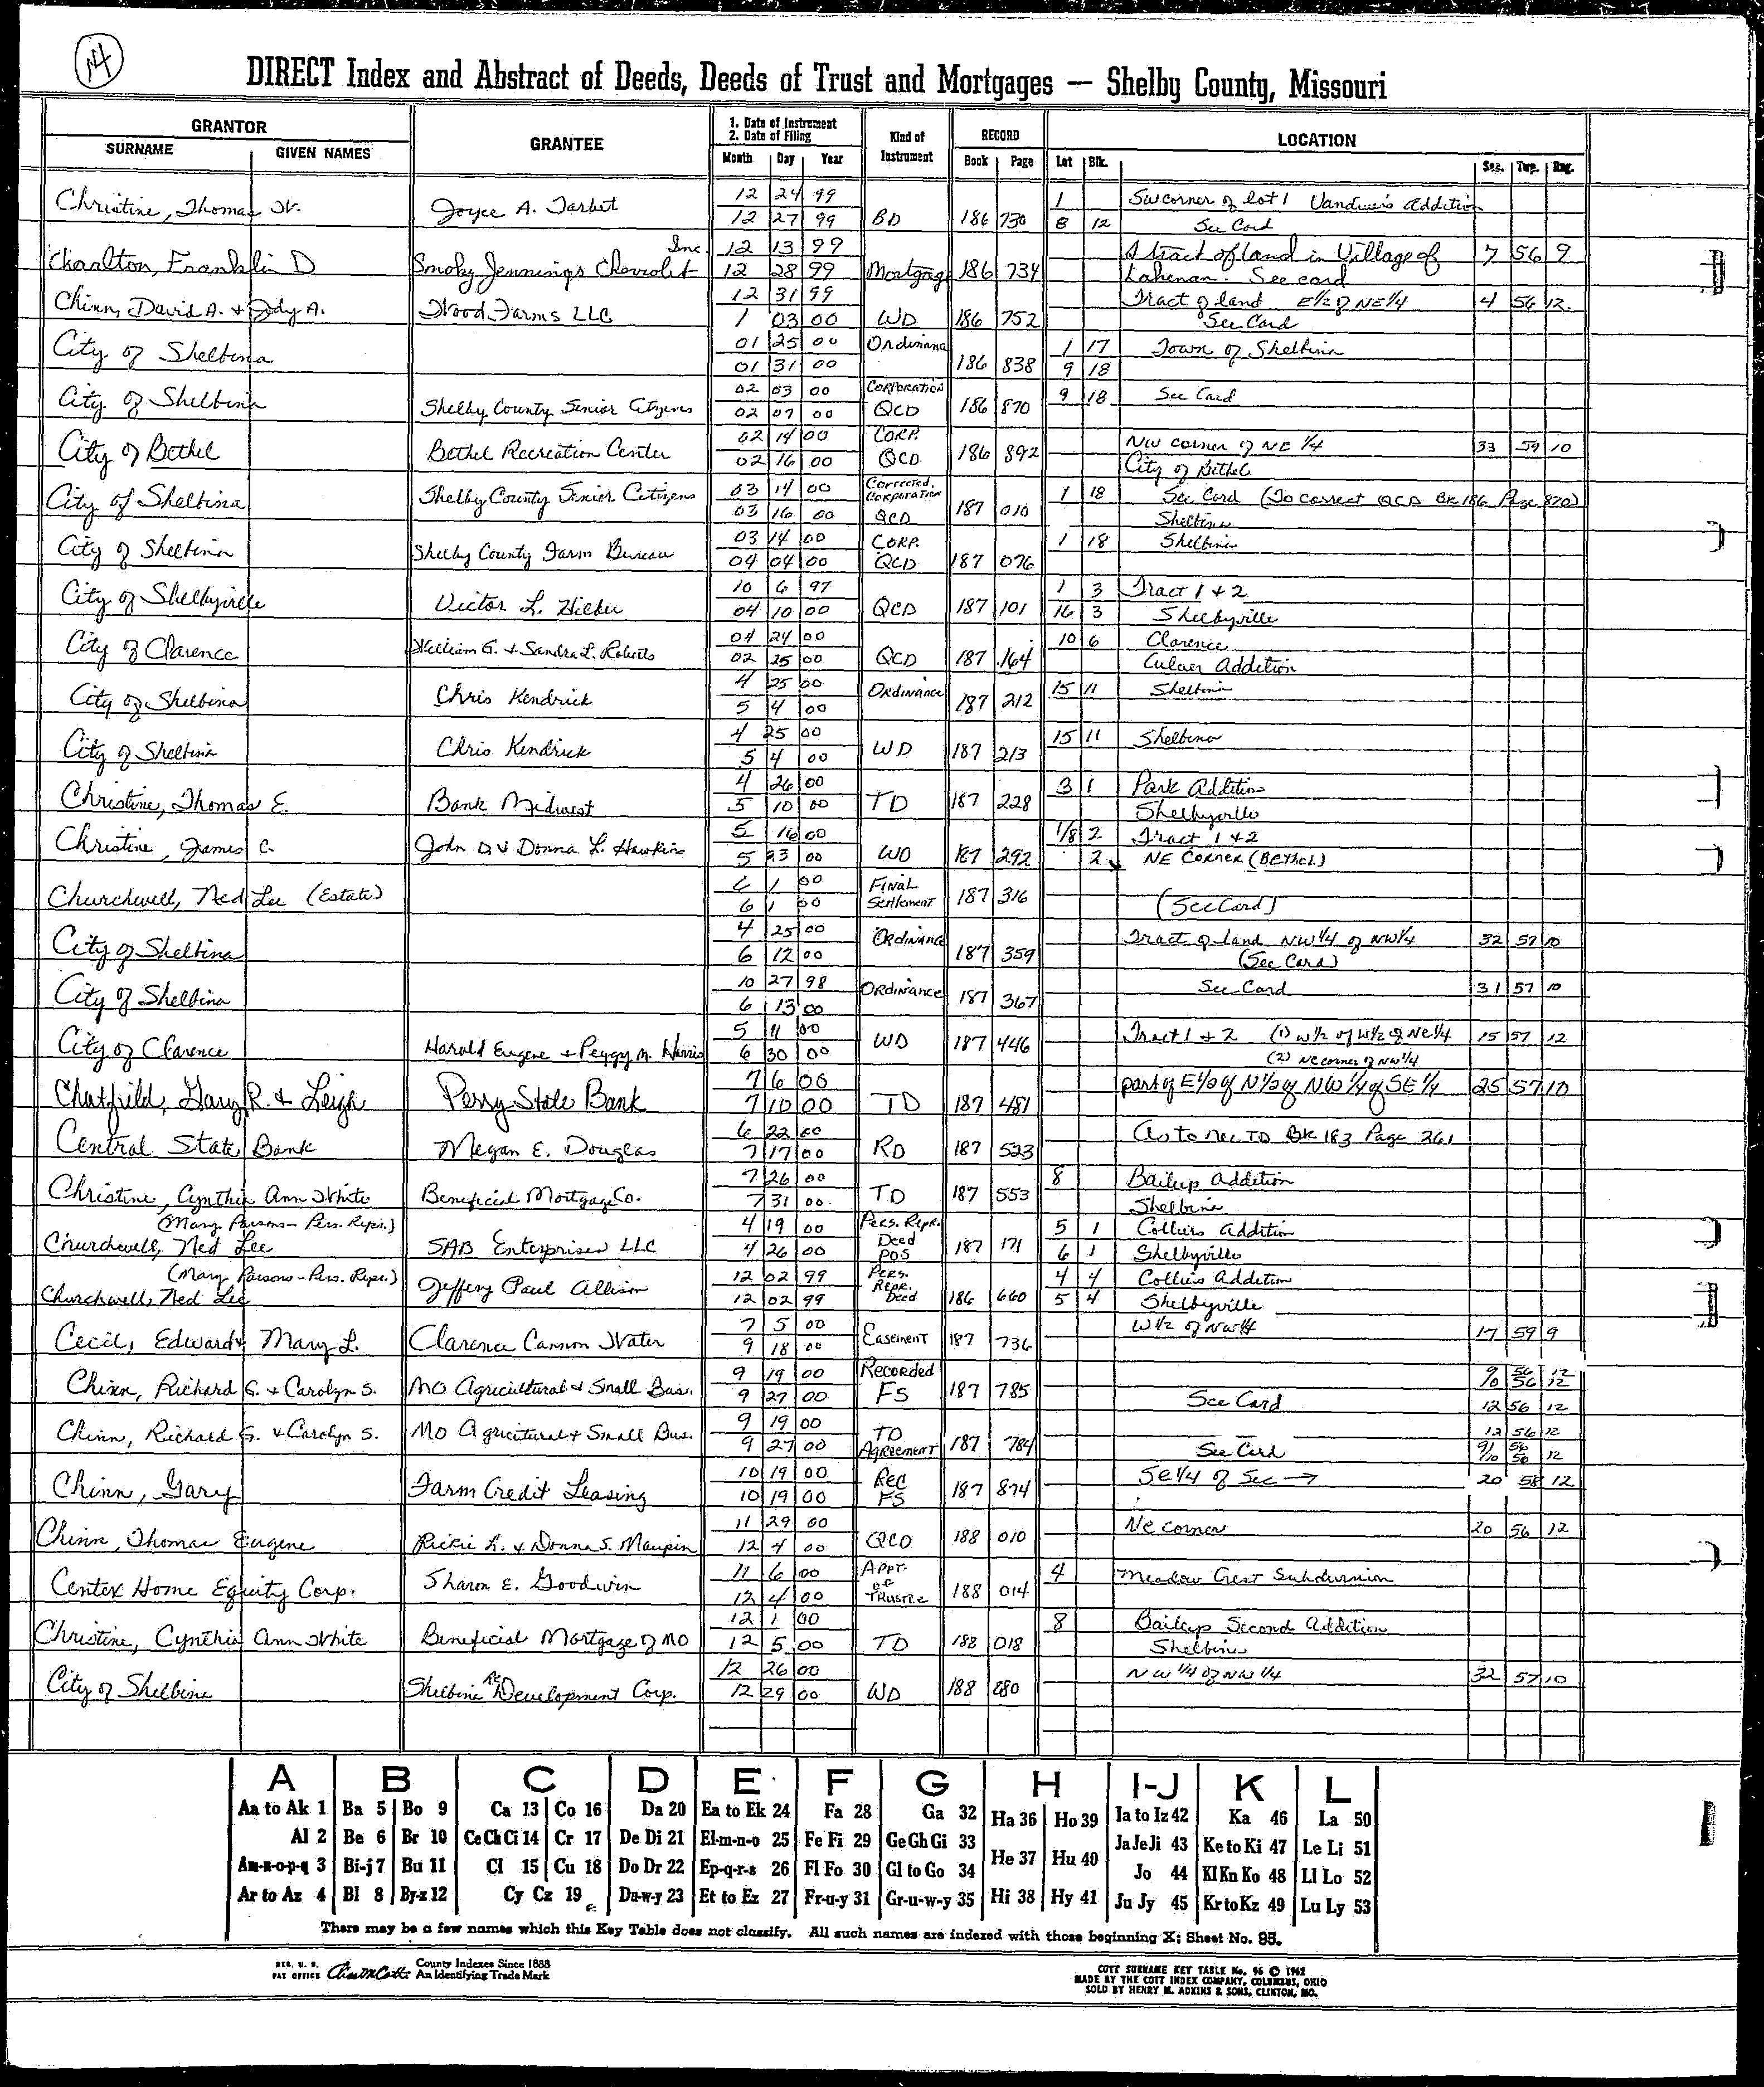 14
DIRECT Index and Abstract of Deeds, Deeds of Trust and Mortgages — Shelby County, Missouri
GRANTOR
SURNAME GIVEN NAMES GRANTEE 1. Date of Instrument 2. Date of Filing Month Day Year Kind of Instrument RECORD Book Page LOCATION Lot Blk. Sec. Twp. Rng.
Christine, Thomas W. Joyce A. Tarbet 12 24 99 BD 186 730 1 SW corner of lot 1 Vandiver's Addition
12 27 99 8 12 See Card
Charlton, Franklin D Smoky Jennings Chevrolet Inc. 12 13 99 Mortgage 186 734 A tract of land in Village of 7 56 9
12 28 99 Lakenan. See card
Chinn, David A. & Jody A. Wood Farms LLC 12 31 99 WD 186 752 Tract of land E½ of NE¼ 4 56 12
1 03 00 See Card
City of Shelbina 01 25 00 Ordinance 186 838 1 17 Town of Shelbina
01 31 00 9 18
City of Shelbina Shelby County Senior Citizens 02 03 00 Corporation QCD 186 870 9 18 See Card
02 07 00
City of Bethel Bethel Recreation Center 02 14 00 Corp. QCD 186 892 NW corner of NE ¼ 33 59 10
02 16 00 City of Bethel
City of Shelbina Shelby County Senior Citizens 03 14 00 Corrected Corporation QCD 187 010 1 18 See Card (To correct QCD BK 186 Page 870)
03 16 00 Shelbina
City of Shelbina Shelby County Farm Bureau 03 14 00 Corp. QCD 187 076 1 18 Shelbina
04 04 00
City of Shelbyville Victor L. Hilber 10 6 97 QCD 187 101 1 3 Tract 1 & 2
04 10 00 16 3 Shelbyville
City of Clarence William G. & Sandra L. Roberts 04 24 00 QCD 187 164 10 6 Clarence
02 25 00 Culver Addition
City of Shelbina Chris Kendrick 4 25 00 Ordinance 187 212 15 11 Shelbina
5 4 00
City of Shelbina Chris Kendrick 4 25 00 WD 187 213 15 11 Shelbina
5 4 00
Christine, Thomas E. Bank Midwest 4 26 00 TD 187 228 3 1 Park Addition
5 10 00 Shelbyville
Christine, James C. John D. & Donna L. Hawkins 5 16 00 WD 187 292 1/8 2 Tract 1 & 2
5 23 00 2 NE Corner (Bethel)
Churchwell, Ned Lee (Estate) 6 1 00 Final Settlement 187 316
6 1 00 (See Card)
City of Shelbina 4 25 00 Ordinance 187 359 Tract of land NW¼ of NW¼ 32 57 10
6 12 00 (See Card)
City of Shelbina 10 27 98 Ordinance 187 367 See Card 31 57 10
6 13 00
City of Clarence Harold Eugene & Peggy M. Harris 5 11 00 WD 187 446 Tract 1 & 2 (1) W½ of W½ of NE¼ 15 57 12
6 30 00 (2) NE corner of NW¼
Chatfield, Gary R. & Leigh Perry State Bank 7 6 00 TD 187 481 part of E½ of N½ of NW ¼ of SE ¼ 25 57 10
7 10 00
Central State Bank Megan E. Douglas 6 22 00 RD 187 523 As to rec TD BK 183 Page 261
7 17 00
Christine, Cynthia Ann White Beneficial Mortgage Co. 7 26 00 TD 187 553 8 Bailup Addition
7 31 00 Shelbina
(Mary Parsons - Pers. Repr.) 4 19 00 Pers. Repr. Deed POS 5 1 Colliers Addition
Churchwell, Ned Lee SAB Enterprises LLC 4 26 00 187 171 6 1 Shelbyville
(Mary Parsons - Pers. Repr.) 12 02 99 Pers. Repr. Deed 4 4 Colliers Addition
Churchwell, Ned Lee Jeffery Paul Allison 12 02 99 186 660 5 4 Shelbyville
Cecil, Edward & Mary L. Clarence Cannon Water 7 5 00 Easement 187 736 W½ of NW¼ 17 59 9
9 18 00
Chinn, Richard G. & Carolyn S. MO Agricultural & Small Bus. 9 19 00 Recorded FS 187 785 9/10 56 56 12 12
9 27 00 See Card 12 56 12
Chinn, Richard G. & Carolyn S. MO Agricultural & Small Bus. 9 19 00 TD Agreement 187 784 12 56 12
9 27 00 See Card 9/10 56 56 12
Chinn, Gary Farm Credit Leasing 10 19 00 Rec FS 187 874 SE¼ of Sec → 20 58 12
10 19 00
Chinn, Thomas Eugene Rickie L. & Donna S. Maupin 11 29 00 QCD 188 010 NE corner 20 56 12
12 4 00
Centex Home Equity Corp. Sharon E. Goodwin 11 6 00 Appt. of Trustee 188 014 4 Meadow Crest Subdivision
12 4 00
Christine, Cynthia Ann White Beneficial Mortgage of MO 12 1 00 TD 188 018 8 Bailup Second Addition
12 5 00 Shelbina
City of Shelbina Shelbina ReDevelopment Corp. 12 26 00 WD 188 280 NW ¼ of NW ¼ 32 57 10
12 29 00
A B C D E F G H I-J K L
Aa to Ak 1 Ba 5 Bo 9 Ca 13 Co 16 Da 20 Ea to Ek 24 Fa 28 Ga 32 Ha 36 Ho 39 Ia to Iz 42 Ka 46 La 50
Al 2 Be 6 Br 10 Ce Ch Ci 14 Cr 17 De Di 21 El-m-n-o 25 Fe Fi 29 Ge Gh Gi 33 He 37 Hu 40 Ja Je Ji 43 Ke to Ki 47 Le Li 51
Am-n-o-p-q 3 Bi-j 7 Bu 11 Cl 15 Cu 18 Do Dr 22 Ep-q-r-s 26 Fl Fo 30 Gl to Go 34 Jo 44 Kl Kn Ko 48 Ll Lo 52
Ar to Az 4 Bl 8 By-z 12 Cy Cz 19 Du-w-y 23 Et to Ez 27 Fr-u-y 31 Gr-u-w-y 35 Hi 38 Hy 41 Ju Jy 45 Kr to Kz 49 Lu Ly 53
There may be a few names which this Key Table does not classify. All such names are indexed with those beginning X; Sheet No. 95.
REG. U. S. PAT OFFICE County Indexes Since 1888 An Identifying Trade Mark
COTT SURNAME KEY TABLE No. 96 © 1962
MADE BY THE COTT INDEX COMPANY, COLUMBUS, OHIO
SOLD BY HENRY M. ADKINS & SONS, CLINTON, MO.